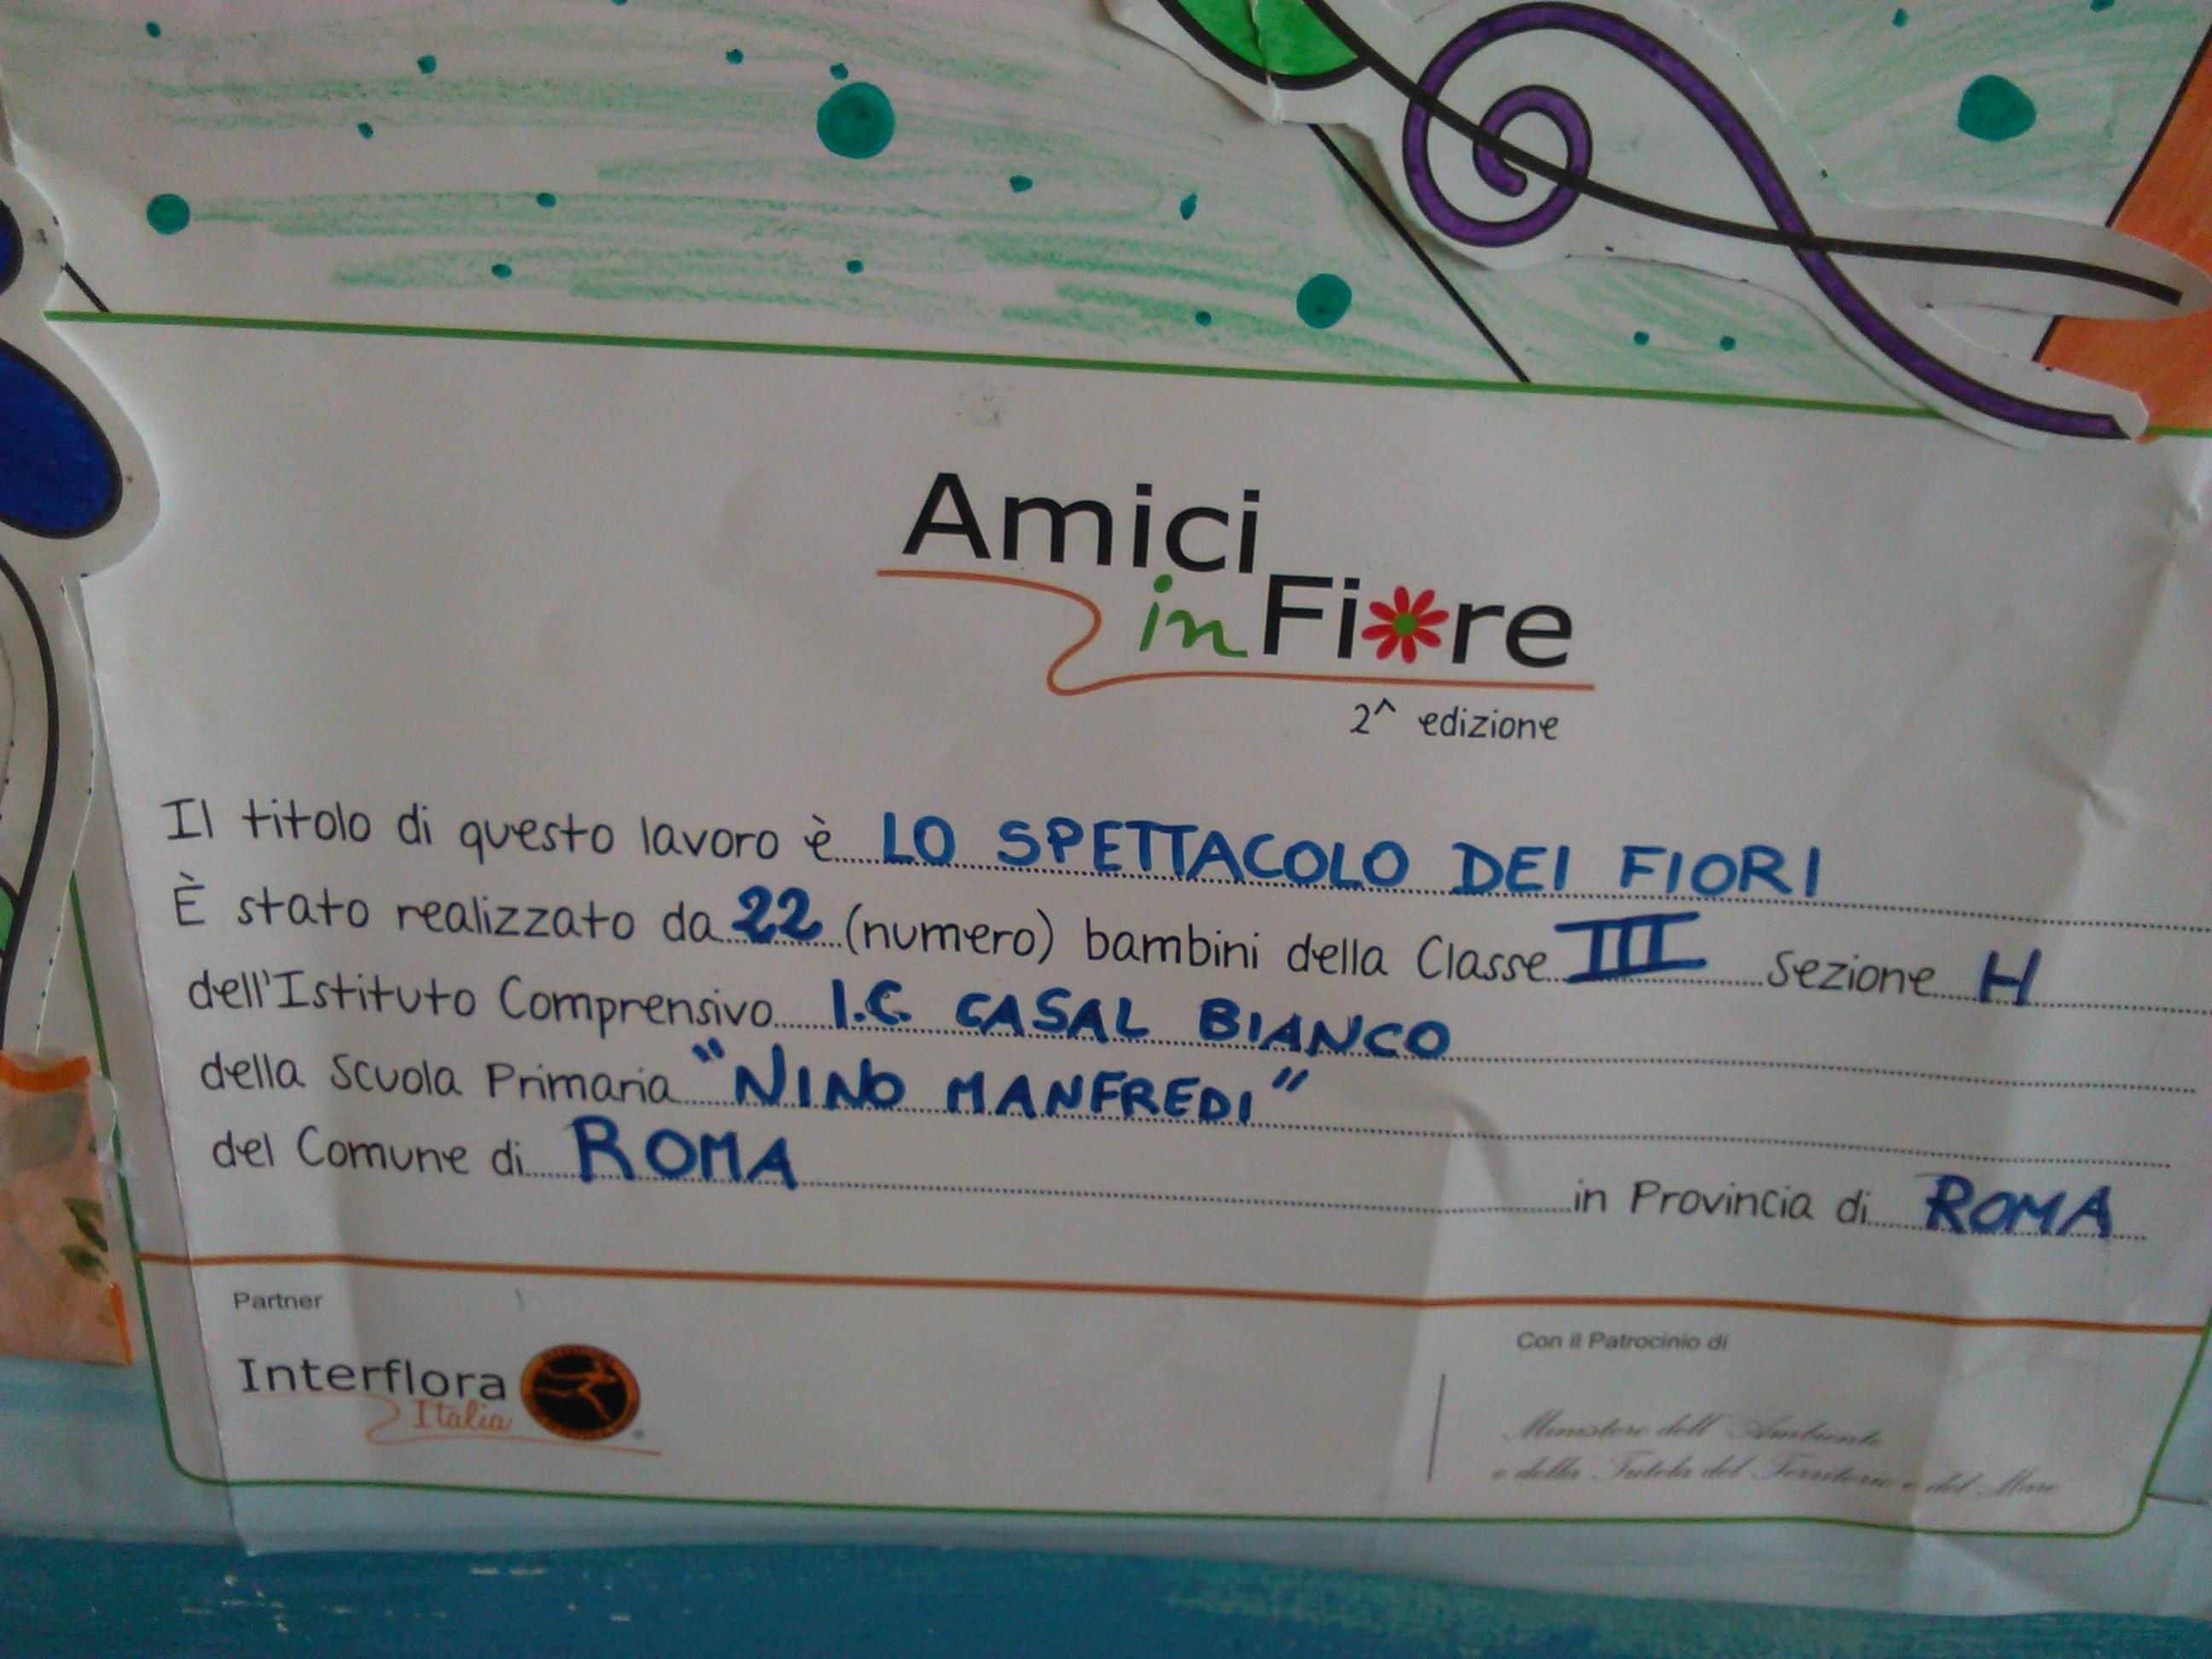 Amici
in Fiore
2^ edizione
Il titolo di questo lavoro è LO SPETTACOLO DEI FIORI
È stato realizzato da 22 (numero) bambini della Classe III Sezione H
dell'Istituto Comprensivo I.C. CASAL BIANCO
della Scuola Primaria "NINO MANFREDI"
del Comune di ROMA in Provincia di ROMA
Partner
Interflora
Italia
Con il Patrocinio di
Ministero dell'Ambiente
e della Tutela del Territorio e del Mare